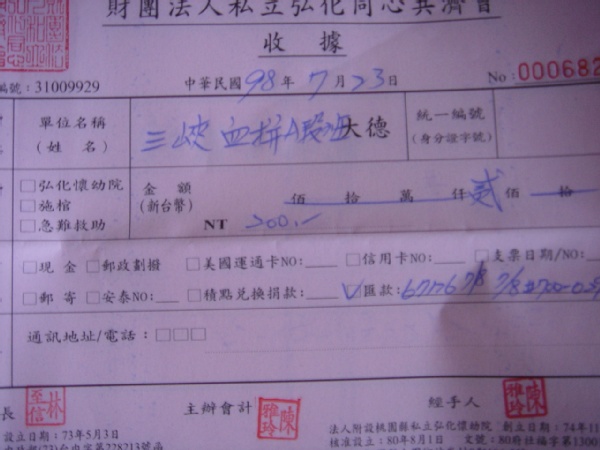 財團法人私立弘化同心共濟會
收據
編號：31009929
中華民國 98 年 7 月 23 日
No: 000682
單位名稱
(姓 名)
三峽血拼 大德
統一編號
(身分證字號)
□弘化懷幼院
□施棺
□急難救助
金 額
(新台幣)
佰 拾 萬 仟 貳 佰 拾
NT 200.-
□現 金 □郵政劃撥 □美國運通卡NO: □信用卡NO: □支票日期/NO:
□郵 寄 □安泰NO: □積點兌換捐款: V匯款: 67176 7/8
通訊地址/電話：□□□
長
林至信
主辦會計
陳雅玲
經手人
陳雅玲
設立日期：73年5月3日
字第228213號函
法人附設桃園縣私立弘化懷幼院 創立日期：74年11
核准設立：80年8月1日 文號：80府社婦字第1300